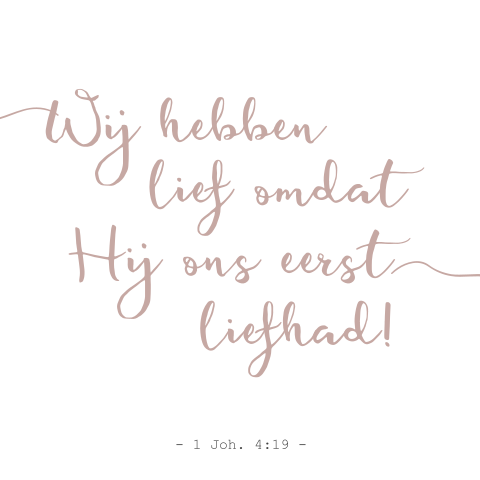 Wij hebben
lief omdat
Hij ons eerst
liefhad!
- 1 Joh. 4:19 -